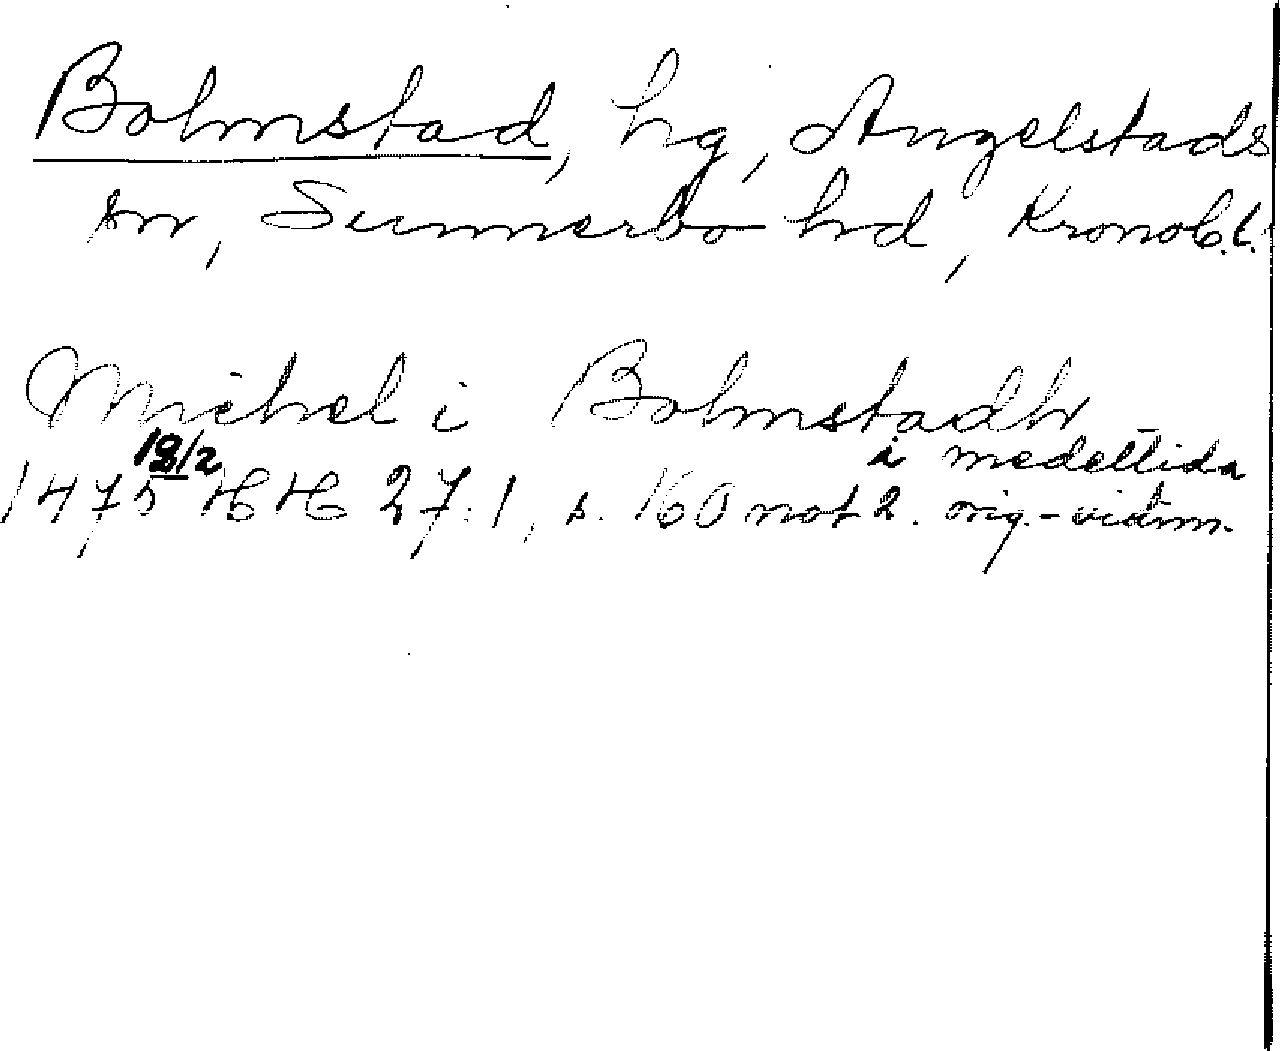 Bolmstad, hg, Angelstads
sn, Sunnerbo hd, Kronob.l.
Michel i Bolmstadh
1475 18/2 HH 27:1, s. 160 not 2. i medeltida
orig.-vidim.